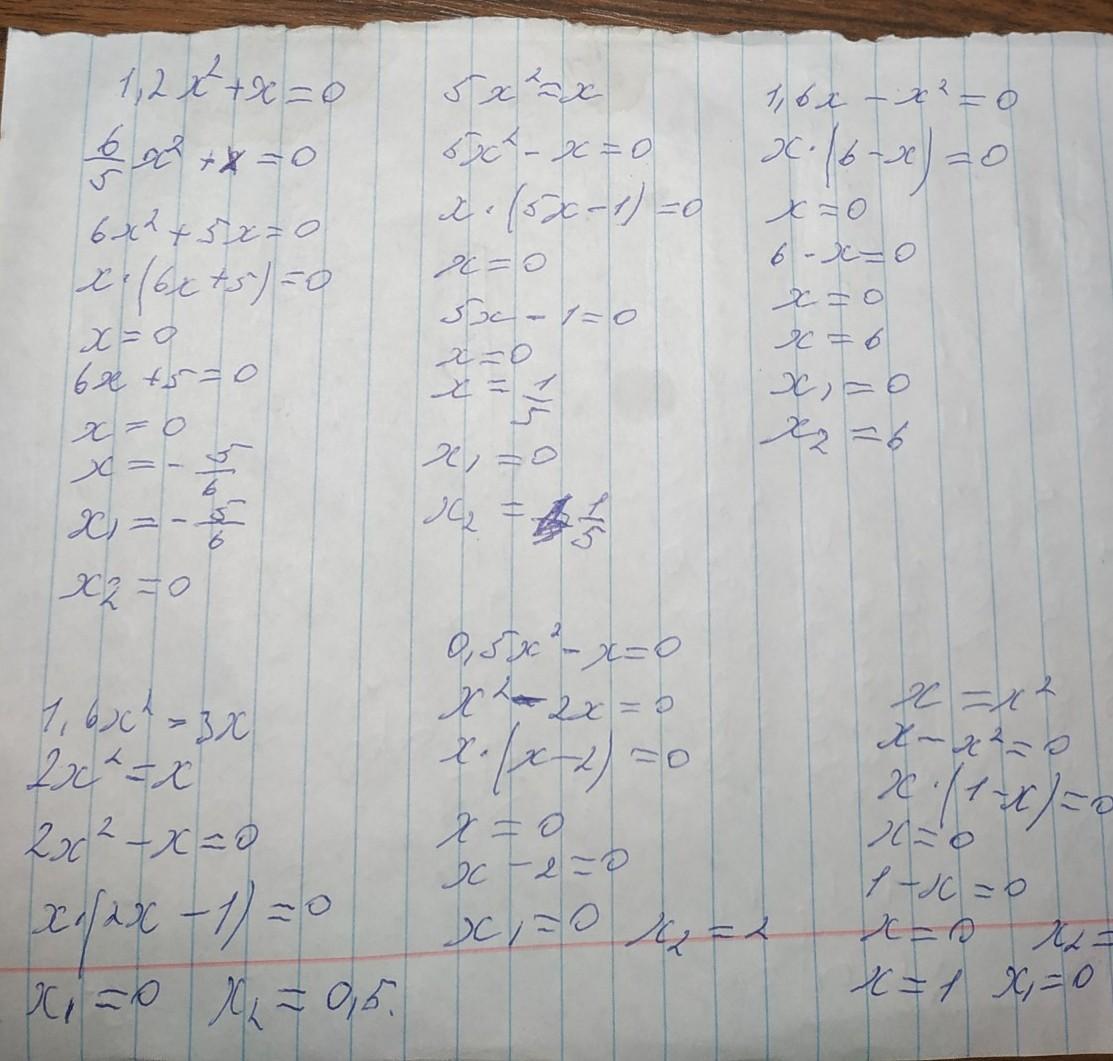 1,2x²+x=0
6/5 x² + x = 0
6x²+5x=0
x·(6x+5)=0
x=0
6x+5=0
x=0
x=-5/6
x₁=-5/6
x₂=0
5x²=x
5x²-x=0
x·(5x-1)=0
x=0
5x-1=0
x=0
x=1/5
x₁=0
x₂=1/5
1,6x-x²=0
x·(6-x)=0
x=0
6-x=0
x=0
x=6
x₁=0
x₂=6
1,6x²=3x
2x²=x
2x²-x=0
x·(2x-1)=0
x₁=0 x₂=0,5.
0,5x²-x=0
x²-2x=0
x·(x-2)=0
x=0
x-2=0
x₁=0 x₂=2
x=x²
x-x²=0
x·(1-x)=0
x=0
1-x=0
x=0 x₂=
x=1 x₁=0